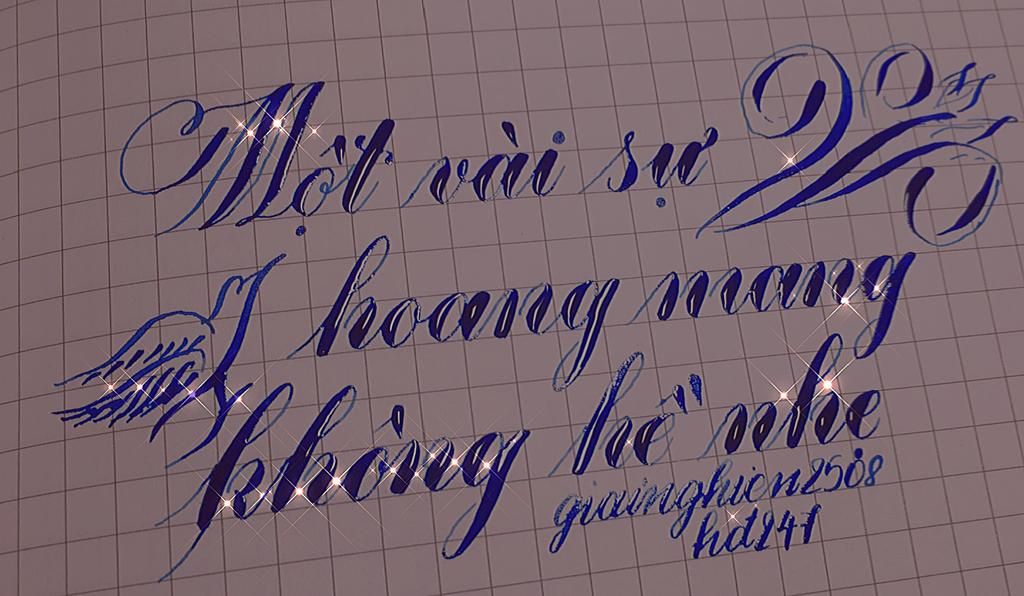 Một vài sự
hoang mang
không hề nhẹ
giainghien2508
hd247